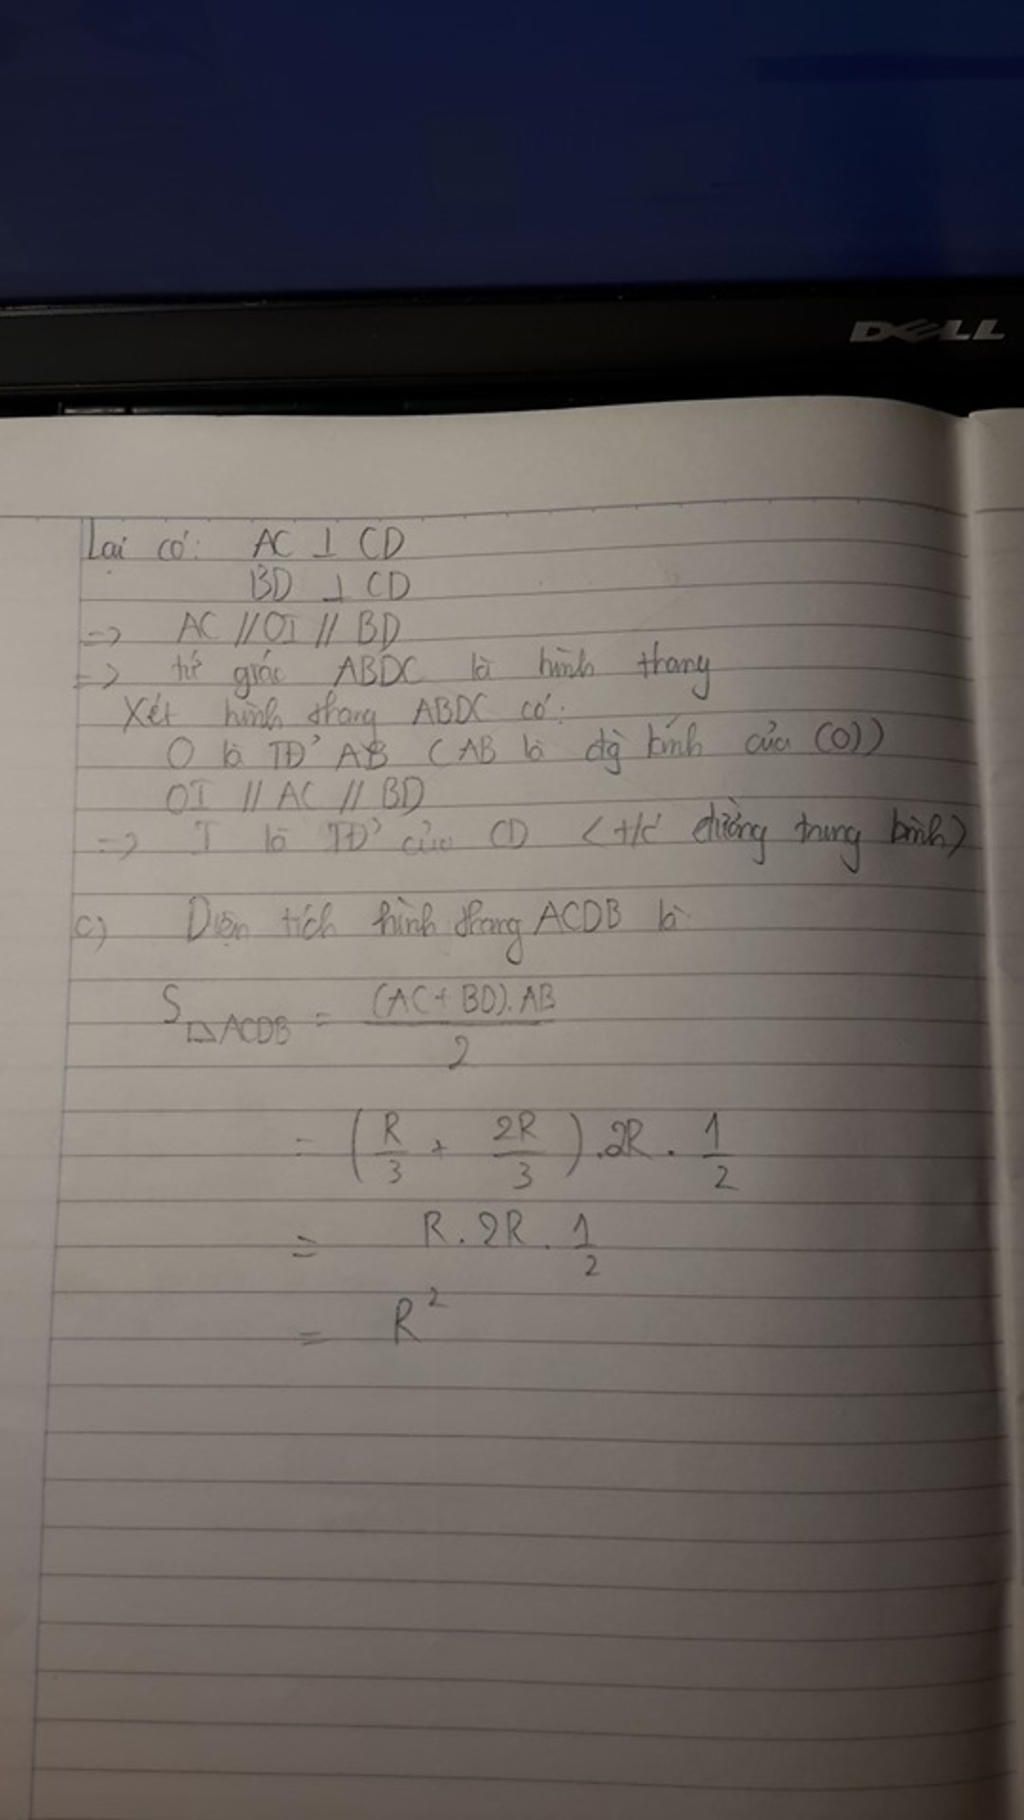 DELL
Lại có: AC ⊥ CD
BD ⊥ CD
=> AC // OI // BD
=> tứ giác ABDC là hình thang
Xét hình thang ABDC có:
O là TĐ' AB (AB là đg kính của (O))
OI // AC // BD
=> I là TĐ' của CD (t/c đường trung bình)
c) Diện tích hình thang ACDB là
S ACDB = (AC + BD). AB / 2
= (R/3 + 2R/3).2R. 1/2
= R. 2R. 1/2
= R²